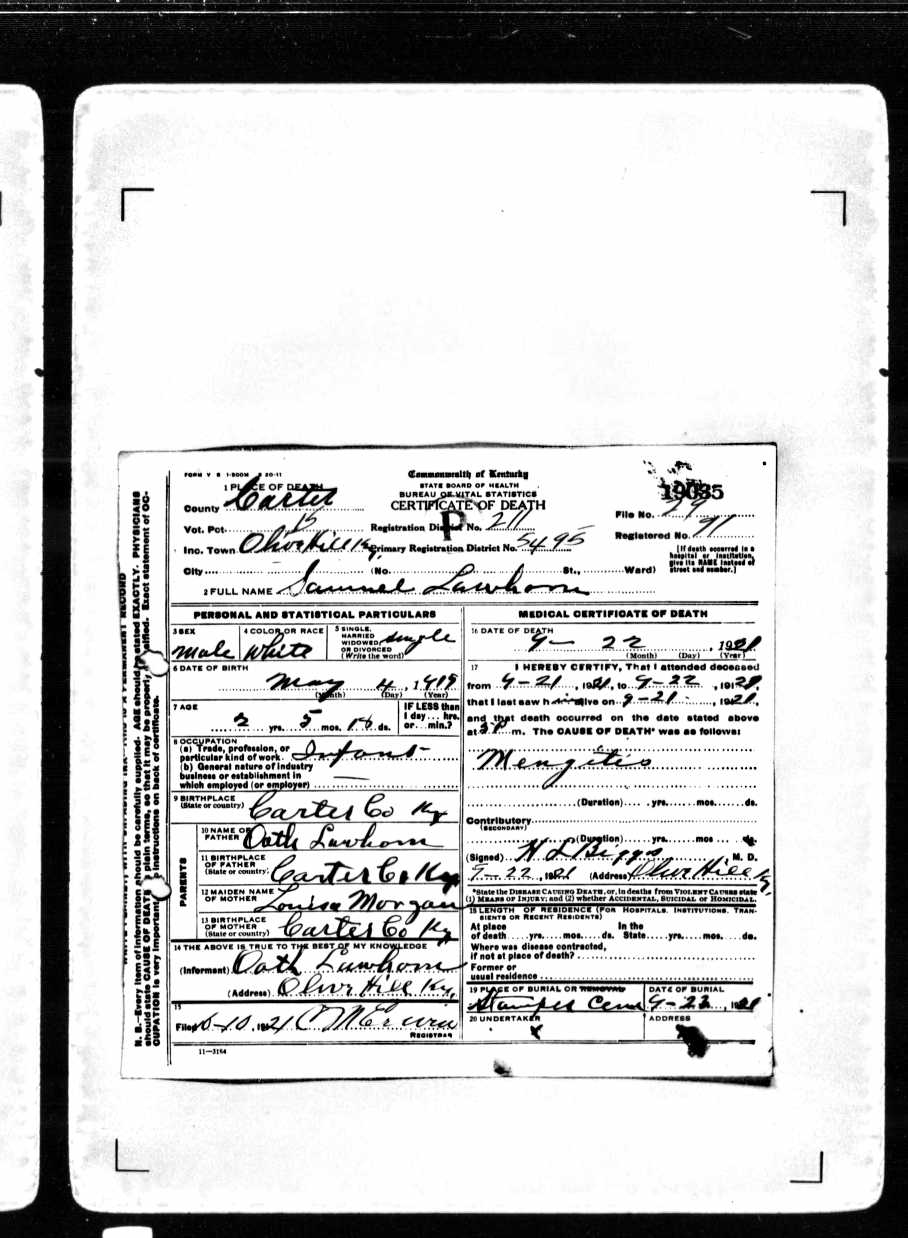 FORM V S 1-500M 20-11
Commonwealth of Kentucky
STATE BOARD OF HEALTH
BUREAU OF VITAL STATISTICS
CERTIFICATE OF DEATH
1 PLACE OF DEATH
County Carter
Vot. Pct. 15
Inc. Town Olive Hill Ky
City (No. St., Ward)
Registration District No. 211
Primary Registration District No. 5495
P
19035
File No. 29
Registered No. 91
[If death occurred in a hospital or institution, give its NAME instead of street and number.]
2 FULL NAME Samuel Lawhorn
PERSONAL AND STATISTICAL PARTICULARS
3 SEX
Male
4 COLOR OR RACE
White
5 SINGLE, MARRIED WIDOWED OR DIVORCED (Write the word)
single
6 DATE OF BIRTH
May 4, 1919
(Month) (Day) (Year)
7 AGE
2 yrs. 5 mos. 18 ds.
IF LESS than 1 day... hrs. or... min.?
8 OCCUPATION
(a) Trade, profession, or particular kind of work Infant
(b) General nature of industry business or establishment in which employed (or employer)
9 BIRTHPLACE
(State or country) Carter Co Ky
PARENTS
10 NAME OF FATHER Oath Lawhorn
11 BIRTHPLACE OF FATHER (State or country) Carter Co Ky
12 MAIDEN NAME OF MOTHER Louisa Morgan
13 BIRTHPLACE OF MOTHER (State or country) Carter Co Ky
14 THE ABOVE IS TRUE TO THE BEST OF MY KNOWLEDGE
(Informant) Oath Lawhorn
(Address) Olive Hill Ky,
15
Filed 10, 1921
REGISTRAR
11—3184
MEDICAL CERTIFICATE OF DEATH
16 DATE OF DEATH
9— 22, 1921
(Month) (Day) (Year)
17 I HEREBY CERTIFY, That I attended deceased
from 9-21, 1921, to 9-22, 1921,
that I last saw h alive on 9-21, 1921,
and that death occurred on the date stated above
at 3 P m. The CAUSE OF DEATH* was as follows:
Mengitis
(Duration) yrs. mos. ds.
Contributory
(SECONDARY)
(Duration) yrs. mos. ds.
(Signed) H L Biggs, M. D.
9-22, 1921 (Address) Olive Hill Ky,
*State the DISEASE CAUSING DEATH, or, in deaths from VIOLENT CAUSES state
(1) MEANS OF INJURY; and (2) whether ACCIDENTAL, SUICIDAL OR HOMICIDAL.
18 LENGTH OF RESIDENCE (FOR HOSPITALS, INSTITUTIONS, TRANSIENTS OR RECENT RESIDENTS)
At place of death yrs. mos. ds. In the State yrs. mos. ds.
Where was disease contracted, if not at place of death?
Former or usual residence
19 PLACE OF BURIAL OR REMOVAL
Stamper Cem
DATE OF BURIAL
9-23, 1921
20 UNDERTAKER
x
ADDRESS
N. B.—Every item of information should be carefully supplied. AGE should be stated EXACTLY. PHYSICIANS
should state CAUSE OF DEATH in plain terms, so that it may be properly classified. Exact statement of OCCUPATION is very important. See instructions on back of certificate.